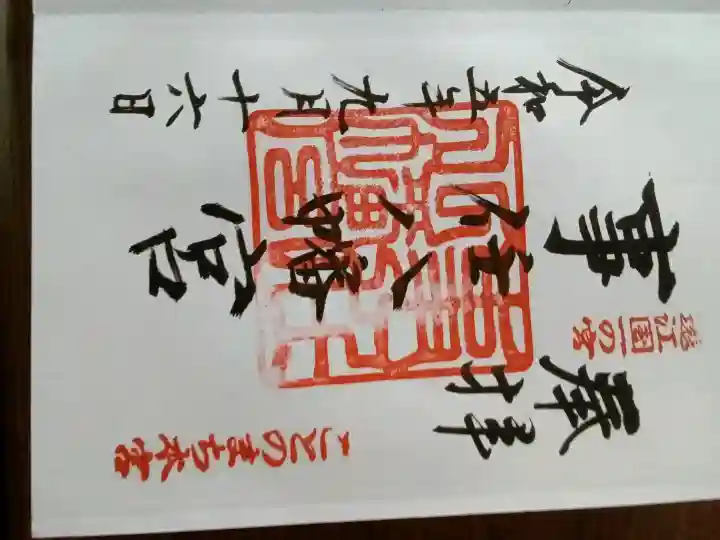 奉拝
ことのまち本宮
遠江国一の宮
事任八幡宮
令和五年九月十六日